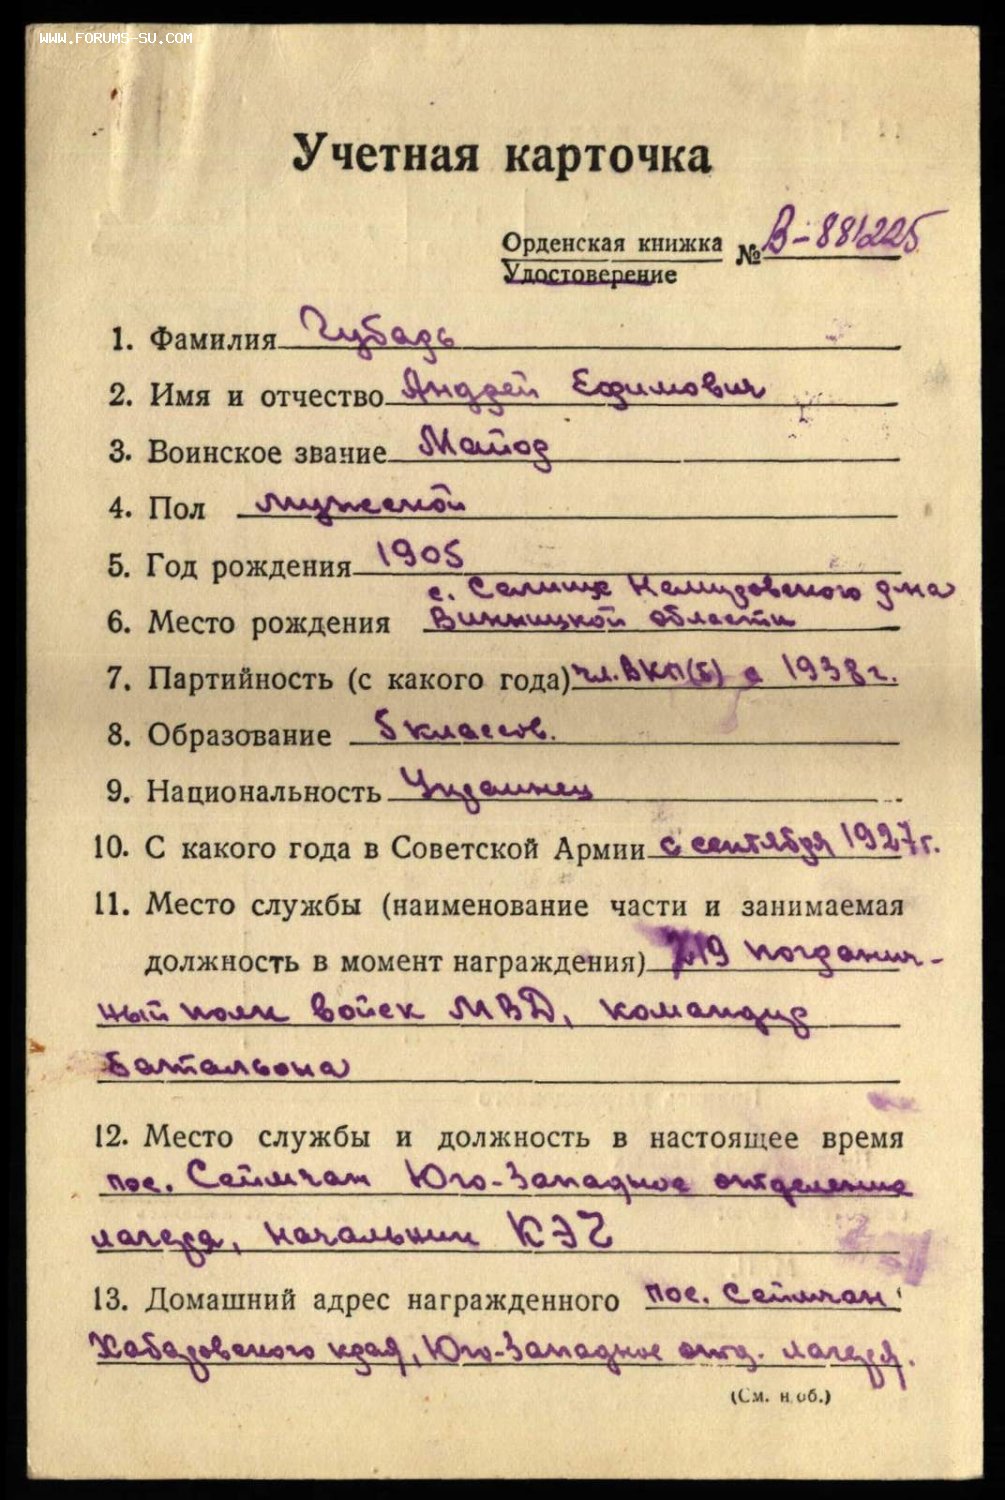 WWW.FORUMS-SU.COM
Учетная карточка
Орденская книжка № В-881225
Удостоверение
1. Фамилия Чубарь
2. Имя и отчество Андрей Ефимович
3. Воинское звание Майор
4. Пол мужской
5. Год рождения 1905
с. Селище Немировского р-на
6. Место рождения Винницкой области
7. Партийность (с какого года) чл. ВКП(б) с 1938 г.
8. Образование 5 классов.
9. Национальность Украинец
10. С какого года в Советской Армии с сентября 1927 г.
11. Место службы (наименование части и занимаемая
должность в момент награждения) 219 погранич-
ный полк войск МВД, командир
батальона
12. Место службы и должность в настоящее время
пос. Сеймчан Юго-Западное отделение
лагеря, начальник КЭЧ
13. Домашний адрес награжденного пос. Сеймчан
Хабаровского края, Юго-Западное отд. лагеря.
(См. н об.)